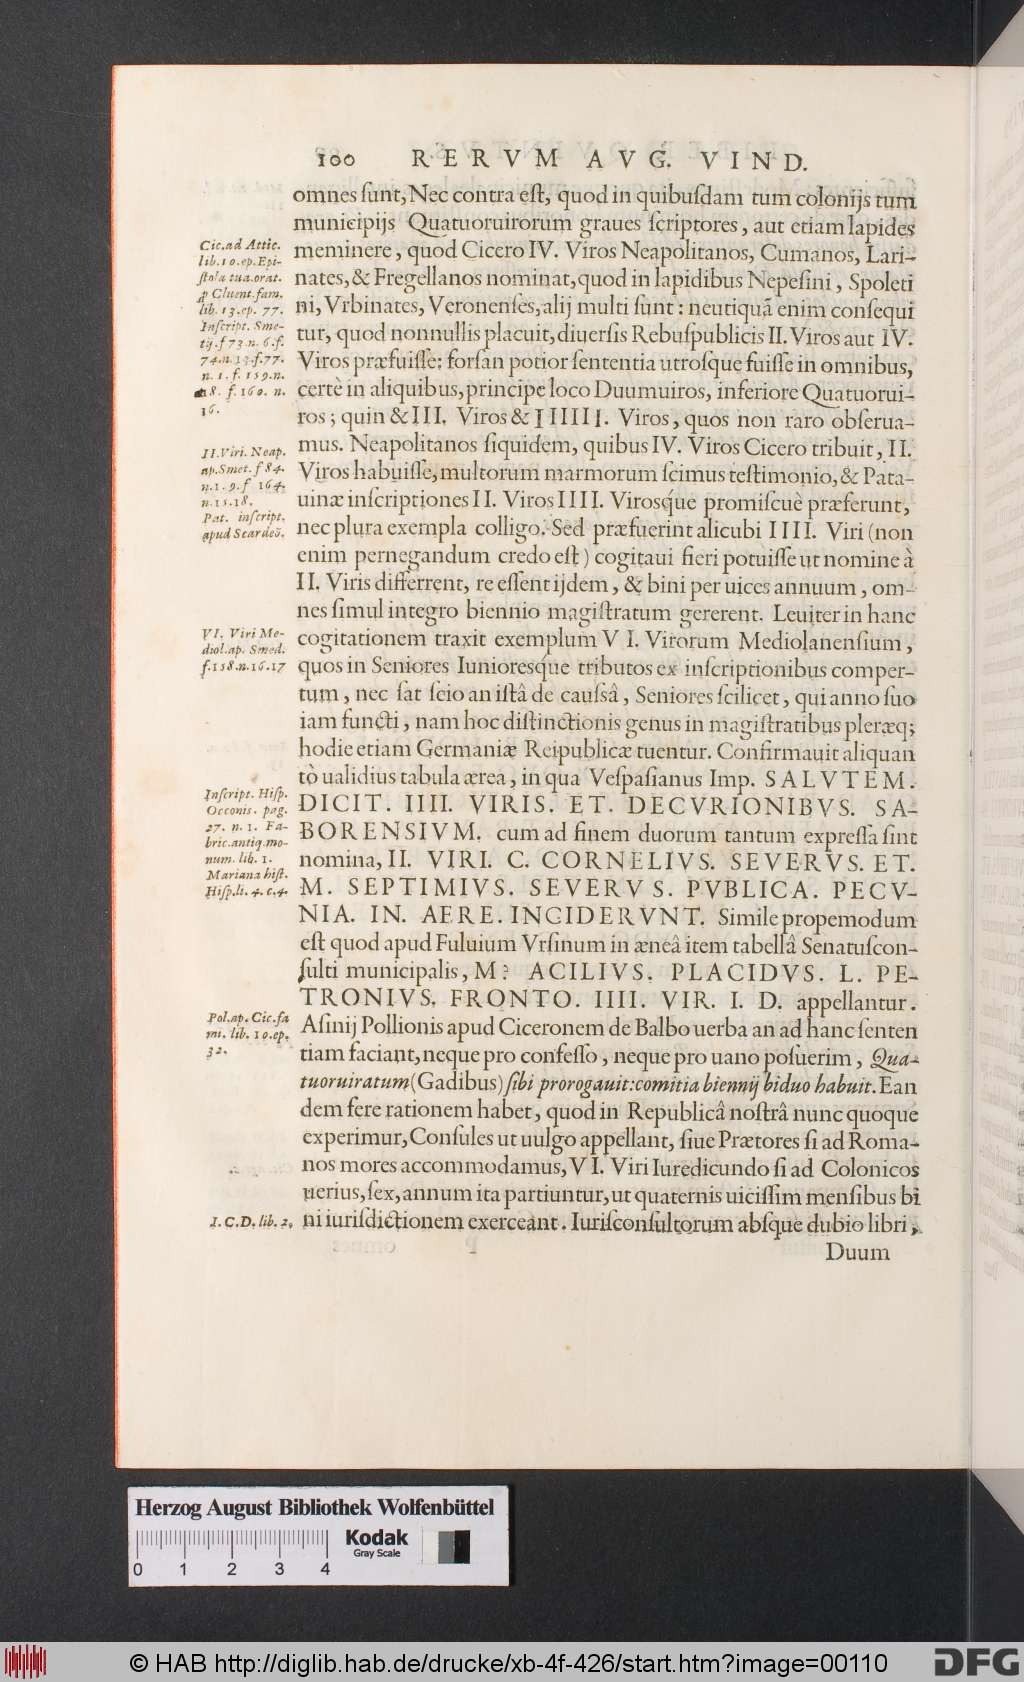 100 RERVM AVG. VIND.
omnes ſunt, Nec contra eſt, quod in quibuſdam tum colonijs tum
municipijs Quatuoruirorum graues ſcriptores, aut etiam lapides
meminere, quod Cicero IV. Viros Neapolitanos, Cumanos, Lari-
nates, & Fregellanos nominat, quod in lapidibus Nepeſini, Spoleti
ni, Vrbinates, Veronenſes, alij multi ſunt: neutiquã enim conſequi
tur, quod nonnullis placuit, diuerſis Rebuſpublicis II. Viros aut IV.
Viros præfuiſſe: forſan potior ſententia utroſque fuiſſe in omnibus,
certè in aliquibus, principe loco Duumuiros, inferiore Quatuorui-
ros; quin & III. Viros & IIIIII. Viros, quos non raro obſerua-
mus. Neapolitanos ſiquidem, quibus IV. Viros Cicero tribuit, II.
Viros habuiſſe, multorum marmorum ſcimus teſtimonio, & Pata-
uinæ inſcriptiones II. Viros IIII. Viroſq́ue promiſcuè præferunt,
nec plura exempla colligo. Sed præfuerint alicubi IIII. Viri (non
enim pernegandum credo eſt) cogitaui fieri potuiſſe ut nomine à
II. Viris differrent, re eſſent ijdem, & bini per uices annuum, om-
nes ſimul integro biennio magiſtratum gererent. Leuiter in hanc
cogitationem traxit exemplum VI. Virorum Mediolanenſium,
quos in Seniores Iunioresq́ue tributos ex inſcriptionibus comper-
tum, nec ſat ſcio an iſtâ de cauſsâ, Seniores ſcilicet, qui anno ſuo
iam functi, nam hoc diſtinctionis genus in magiſtratibus pleræq;
hodie etiam Germaniæ Reipublicæ tuentur. Confirmauit aliquan
tò ualidius tabula ærea, in qua Veſpaſianus Imp. SALVTEM.
DICIT. IIII. VIRIS. ET. DECVRIONIBVS. SA-
BORENSIVM. cum ad finem duorum tantum expreſſa ſint
nomina, II. VIRI. C. CORNELIVS. SEVERVS. ET.
M. SEPTIMIVS. SEVERVS. PVBLICA. PECV-
NIA. IN. AERE. INCIDERVNT. Simile propemodum
eſt quod apud Fuluium Vrſinum in æneâ item tabellâ Senatuſcon-
ſulti municipalis, M? ACILIVS. PLACIDVS. L. PE-
TRONIVS. FRONTO. IIII. VIR. I. D. appellantur.
Aſinij Pollionis apud Ciceronem de Balbo uerba an ad hanc ſenten
tiam faciant, neque pro confeſſo, neque pro uano poſuerim, Qua-
tuoruiratum (Gadibus) ſibi prorogauit: comitia biennij biduo habuit. Ean
dem fere rationem habet, quod in Republicâ noſtrâ nunc quoque
experimur, Conſules ut uulgo appellant, ſiue Prætores ſi ad Roma-
nos mores accommodamus, VI. Viri Iuredicundo ſi ad Colonicos
uerius, ſex, annum ita partiuntur, ut quaternis uiciſſim menſibus bi
ni iuriſdictionem exerceant. Iuriſconſultorum abſque dubio libri,
Duum
Cic. ad Attic.
lib. 10. ep. Epi-
ſtola tua. orat.
ꝓ Cluent. fam.
lib. 13. ep. 77.
Inſcript. Sme-
tij. f 73. n. 6. f.
74. n. 13. f. 77.
n. 1. f. 159. n.
18. f. 160. n.
16.
II. Viri. Neap.
ap. Smet. f 84.
n. 1. 9. f 164.
n. 15. 18.
Pat. inſcript.
apud Scardeõ.
VI. Viri Me-
diol. ap. Smed.
f. 158. n. 16. 17
Inſcript. Hiſp.
Occonis. pag.
27. n. 1. Fa-
bric. antiq. mo-
num. lib. 1.
Mariana hiſt.
Hiſp. li. 4. c. 4.
Pol. ap. Cic. fa
mi. lib. 10. ep.
32.
I. C. D. lib. 2.
Herzog August Bibliothek Wolfenbüttel
Kodak
Gray Scale
0 1 2 3 4
© HAB http://diglib.hab.de/drucke/xb-4f-426/start.htm?image=00110
DFG